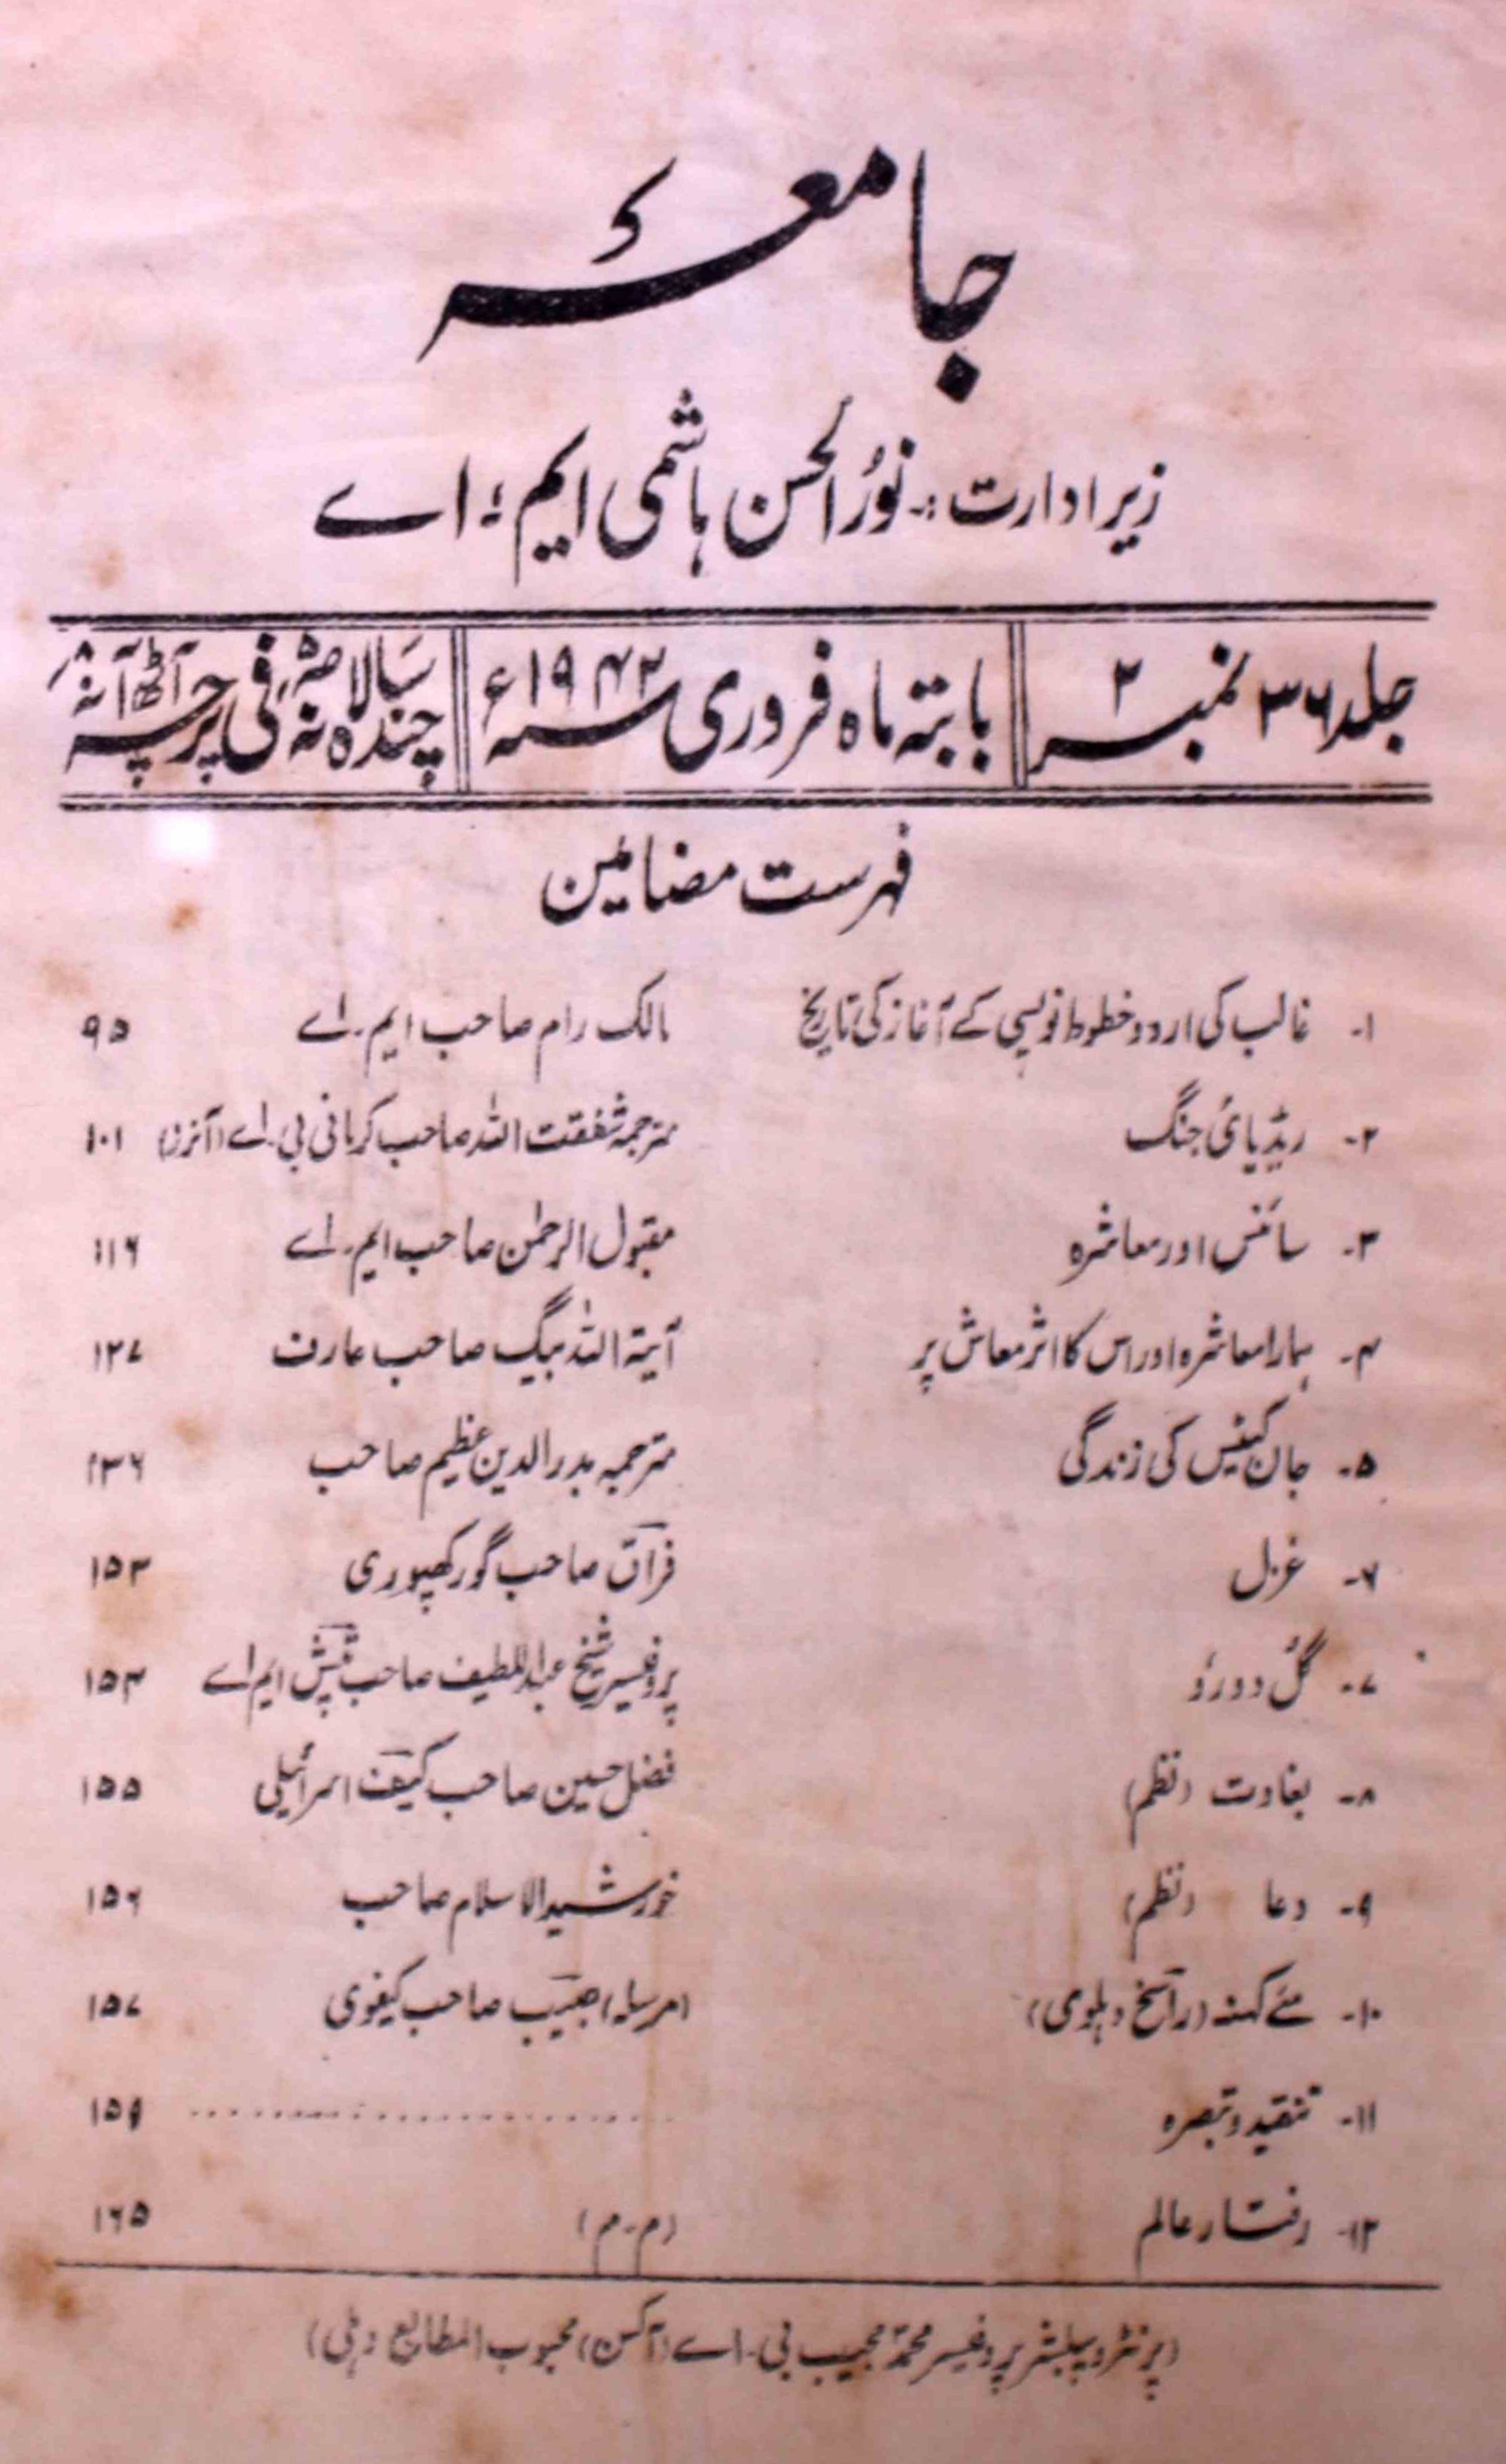 جامعہ
زیر ادارت :۔ نورُ الحسن ہاشمی ایم ، اے
جلد ۳۶ نمبر ۲
بابتہ ماہ فروری سنہ ۱۹۴۲ء
سالانہ چندہ صہ فی پرچہ آٹھ آنہ
فہرست مضامین
۱۔ غالب کی اردو خطوط نویسی کے آغاز کی تاریخ مالک رام صاحب ایم ۔ اے ۹۵
۲۔ ریڈیائی جنگ مترجمہ شفقت اللہ صاحب کرمانی بی ۔ اے (آنرز) ۱۰۱
۳۔ سائنس اور معاشرہ مقبول الرحمٰن صاحب ایم ۔ اے ۱۱۶
۴۔ ہمارا معاشرہ اور اس کا اثر معاش پر آیۃ اللہ بیگ صاحب عارف ۱۲۷
۵۔ جان کیٹس کی زندگی مترجمہ بدر الدین عظیم صاحب ۱۳۶
۶۔ غزل فراقؔ صاحب گورکھپوری ۱۵۳
۷۔ گُل دو رُو پروفیسر شیخ عبد اللطیف صاحب تپشؔ ایم اے ۱۵۴
۸۔ بغاوت (نظم) فضل حسین صاحب کیفؔ اسرائیلی ۱۵۵
۹۔ دعا (نظم) خورشید الاسلام صاحب ۱۵۶
۱۰۔ مئے کہنہ (راسخؔ دہلوی) (مرسلہ) حبیبؔ صاحب کیفوی ۱۵۷
۱۱۔ تنقید و تبصرہ .......................... ۱۵۹
۱۲۔ رفتار عالم (م ۔ م) ۱۶۵
(پرنٹر و پبلشر پروفیسر محمد مجیب بی ۔ اے (آکسن) محبوب المطابع دہلی)